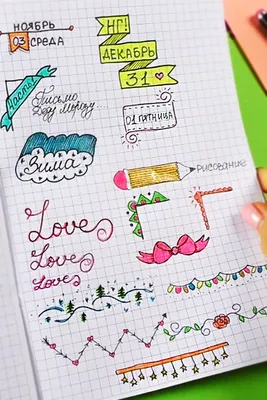 НОЯБРЬ
03 СРЕДА
НГ!
ДЕКАБРЬ
31
Часть
Письмо
Деду Морозу
01 ПЯТНИЦА
Зима
РИСОВАНИЕ
Love
Love
Love